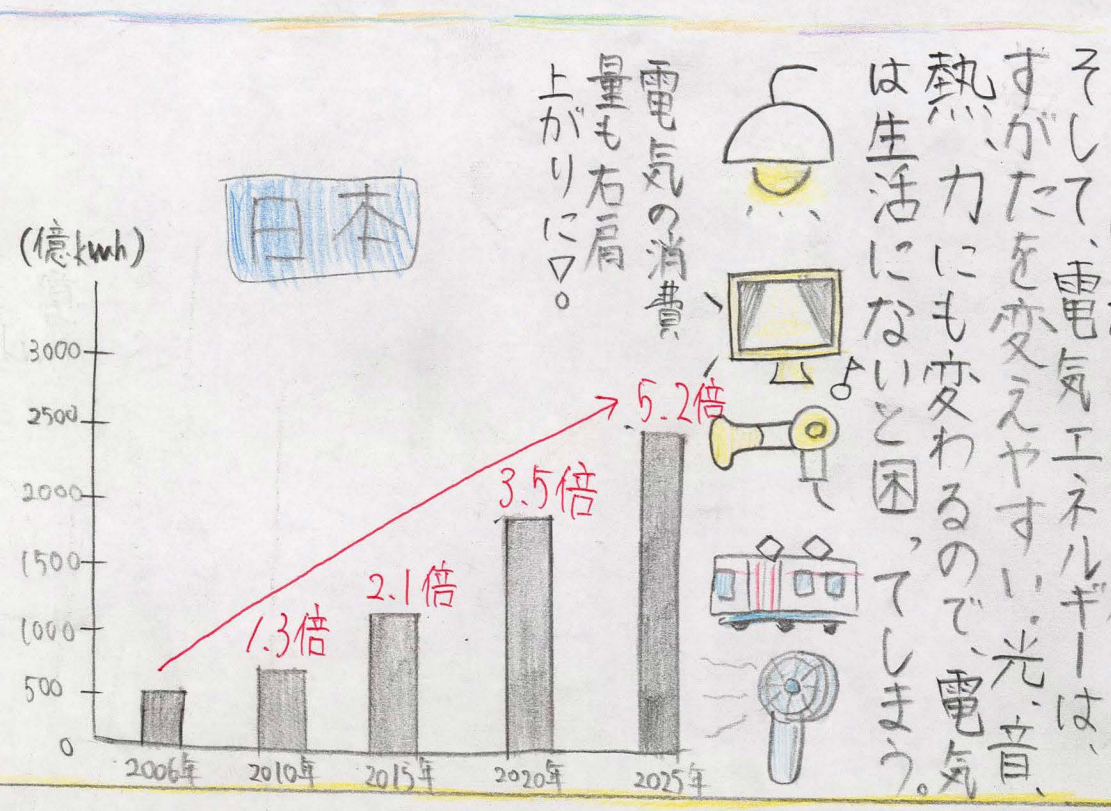 そして、電気エネルギーは、
すがたを変えやすい。光、音、
熱、力にも変わるので、電気
は生活にないと困ってしまう。
電気の消費
量も右肩
上がりに▽。
日本
(億kwh)
3000
2500
2000
1500
1000
500
0
1.3倍
2.1倍
3.5倍
5.2倍
2006年
2010年
2015年
2020年
2025年